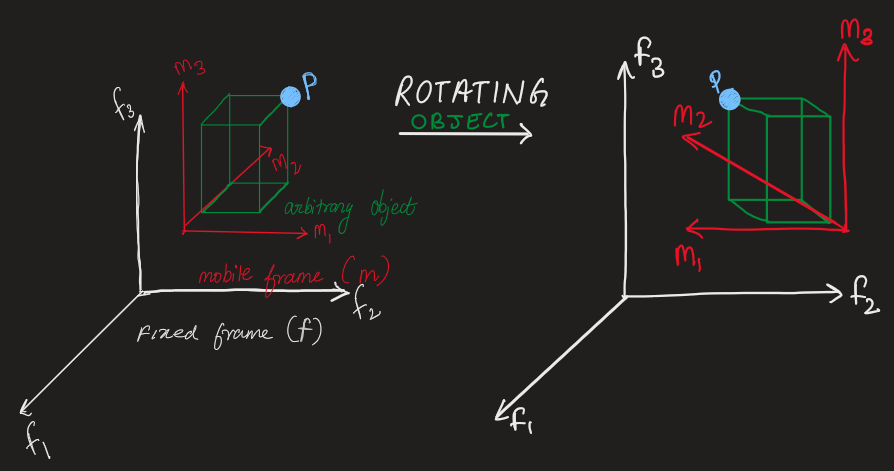 m3
P
f3
m2
arbitrary object
m1
mobile frame (m)
f2
Fixed frame (f)
f1
ROTATING
OBJECT
m3
f3
P
m2
m1
f2
f1